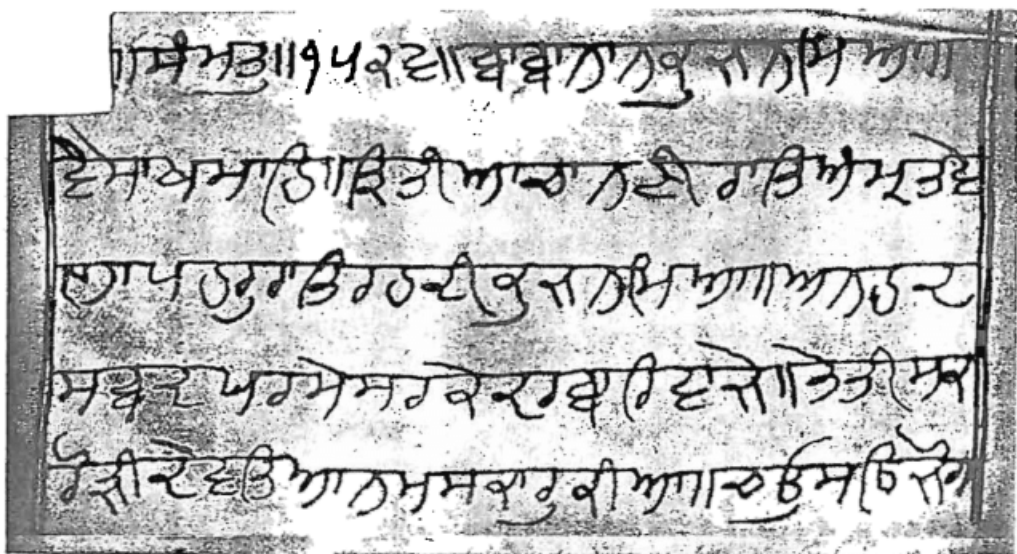 ॥ਸੰਮਤੁ॥੧੫੨੬॥ਬਾਬਾਨਾਨਕੁਜਨਮਿਆ॥
ਵੈਸਾਖਮਾਹਿ॥ਤ੍ਰਿਤੀਆਚਾਨਣੀਰਾਤਿਅੰਮ੍ਰਤਵੇ
ਲਾਪਹਰੁਰਾਤਿਰਹਦੀਕੁਜਨਮਿਆ॥ਅਨਹਦ
ਸਬਦਪਰਮੇਸਰਕੇਦਰਬਾਰਿਵਾਜੇ॥ਤੇਤੀਸਕ
ਰੋੜੀਦੇਵਤਿਆਨਮਸਕਾਰੁਕੀਆ॥ਚਉਸਠਿਜੋਗ